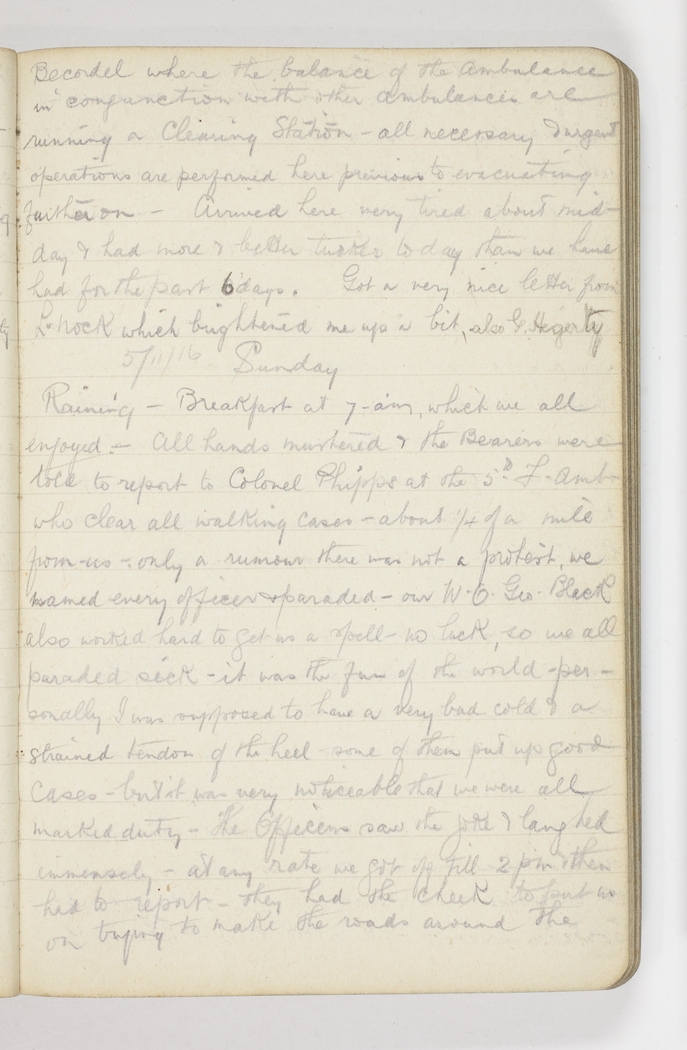 Becordel where the balance of the Ambulance
in conjunction with other ambulances are
running a Clearing Station - all necessary & urgent
operations are performed here previous to evacuating
further on - Arrived here very tired about mid-
day & had more & better tucker to day than we have
had for the past 6 days. Got a very nice letter from
L. Nock which brightened me up a bit, also G. Hegerty
5/11/16 Sunday
Raining - Breakfast at 7-am, which we all
enjoyed - All hands mustered & the Bearers were
told to report to Colonel Phipps at the 5th F-Amb-
who clear all walking cases - about 1/4 of a mile
from us - only a rumour there was not a protest, we
every officer & paraded - our W.O. Geo. Black
also worked hard to get us a spell - no luck, so we all
paraded sick - it was the fun of the world - per-
sonally I was supposed to have a very bad cold & a
strained tendon of the heel - some of them put up good
cases - but it was very noticeable that we were all
marked duty - The Officers saw the joke & laughed
immensely - at any rate we got off till 2 pm & then
had to report - they had the cheek to put us
on trying to make the roads around the